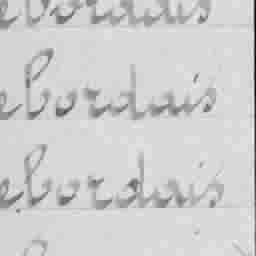 ebordais
ebordais
ebordais